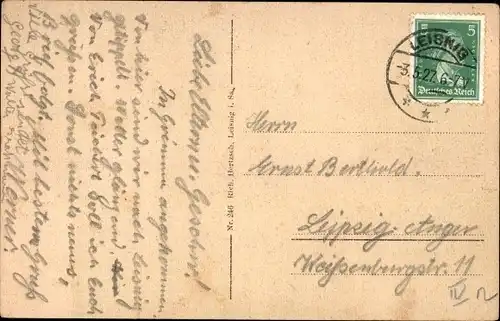 Liebe Eltern u. Geschw!
In Grimma angekommen.
Von hier sind wir nach Leisnig
getippelt. Wetter glänzend.
Von Erich Teichert soll ich Euch
grüßen. Sonst nichts neues.
Mit bestem Gruß
Werner.
Nr. 246 Rich. Hertzsch, Leisnig i. Sa.
LEISNIG
-3.5.27.
5
Deutsches Reich
Herrn
Ernst Berthold.
Leipzig-Anger
Weißenburgstr. 11